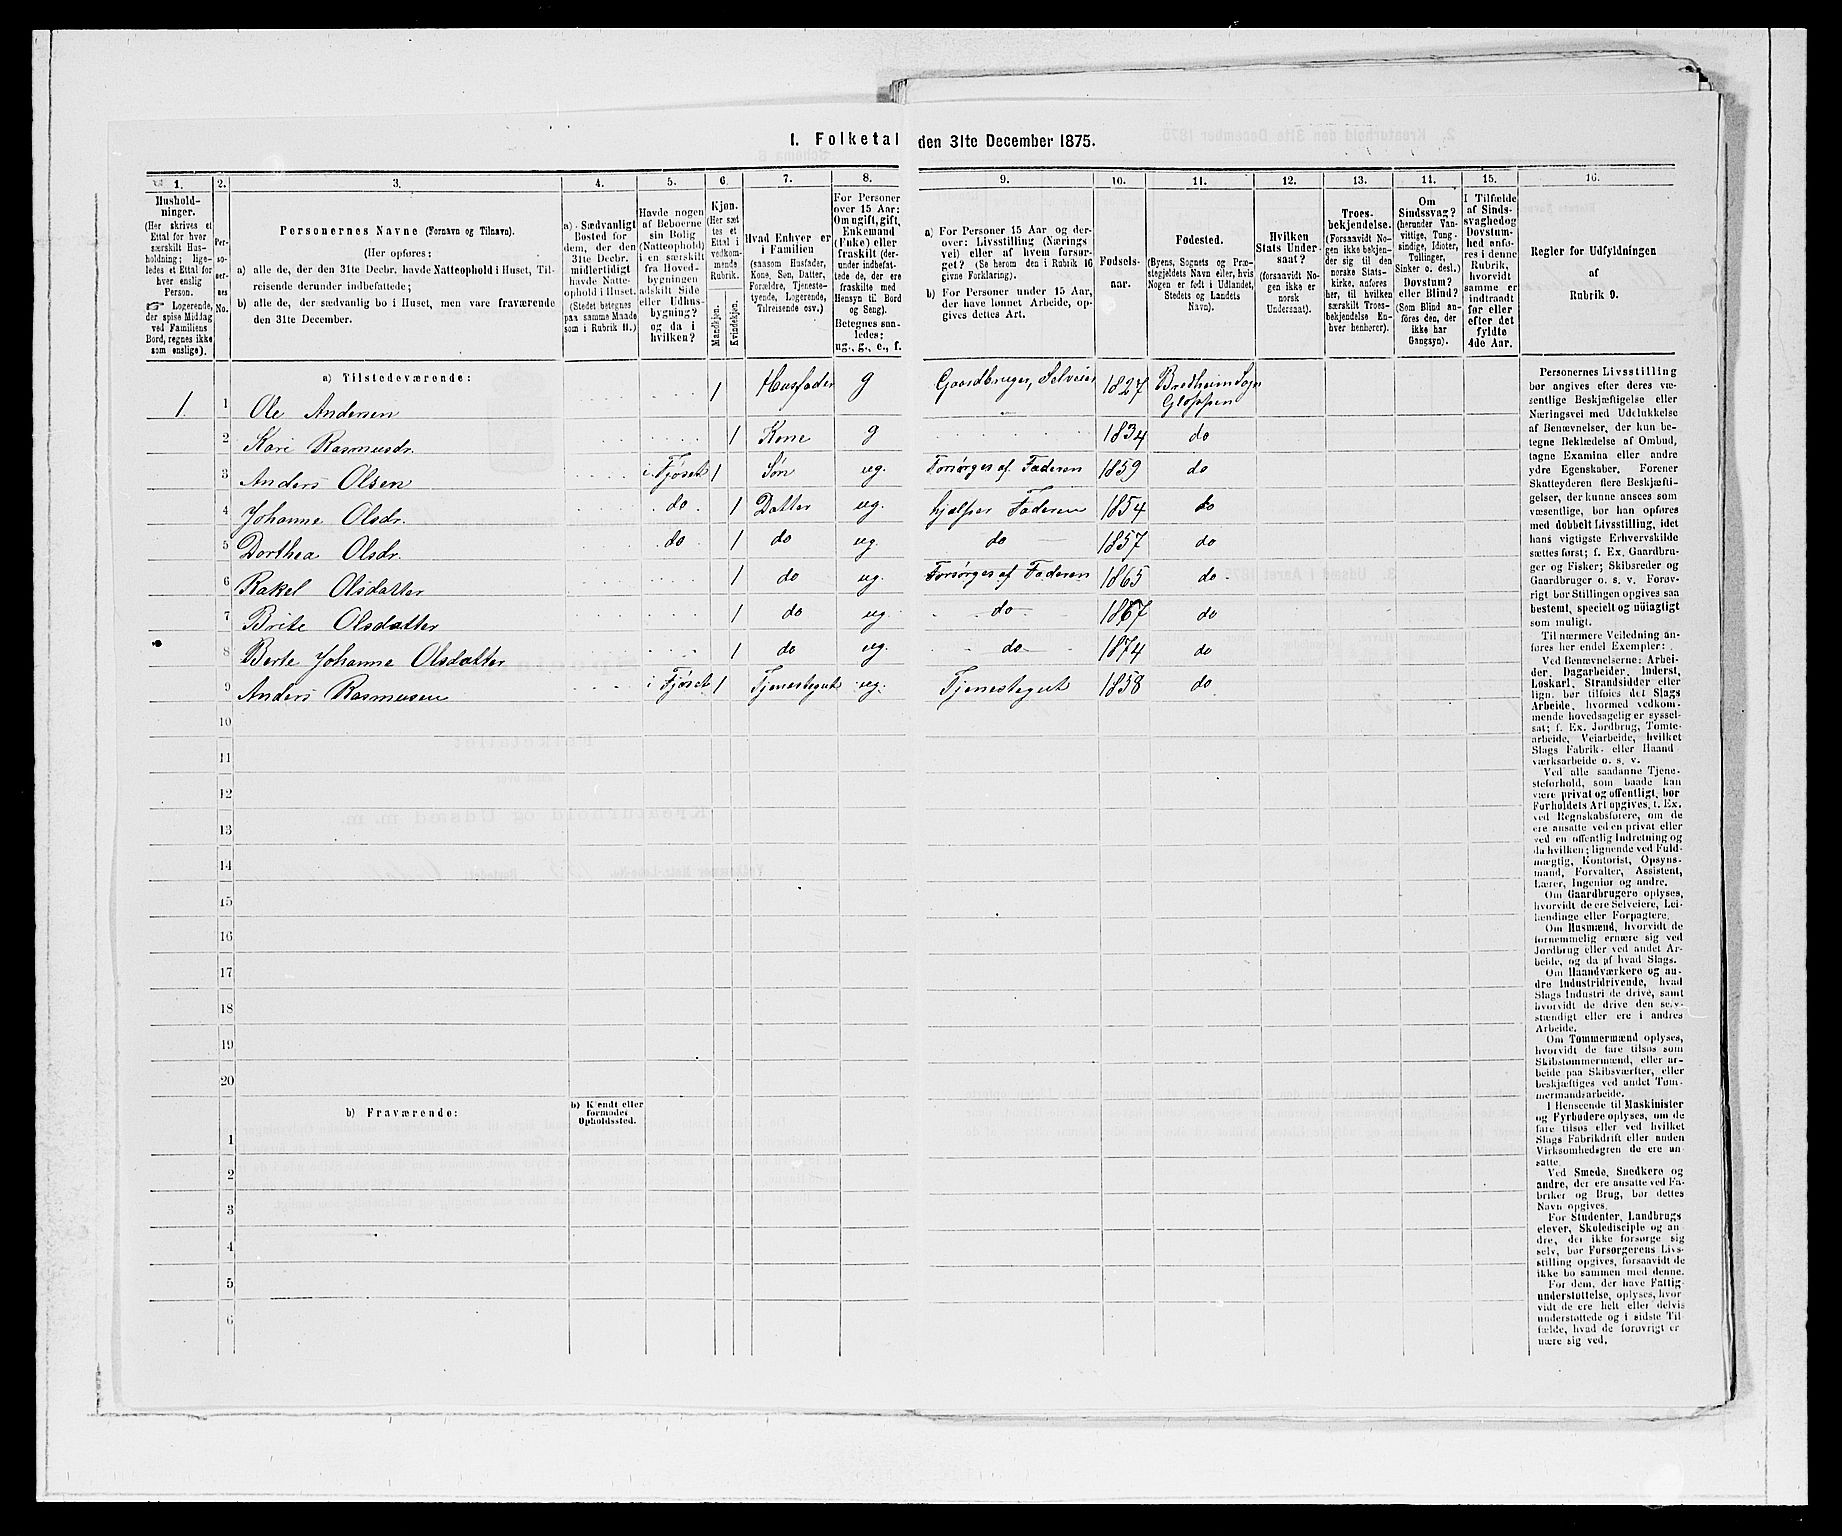 1. Folketal den 31te December 1875.
1. 2. 3. 4. 5. 6. 7. 8. 9. 10. 11. 12. 13. 14. 15. 16.
Husholdninger.
(Her skrives et
Ettal for hver
særskilt Husholdning;
ligeledes et Ettal for
hver enslig
Person.
Logerende,
der spise Middag
ved Familiens
Bord, regnes ikke
som enslige).
Personernes No.
Personernes Navne (Fornavn og Tilnavn).
(Her opføres:
a) alle de, der den 31te Decbr. havde Natteophold i Huset, Tilreisende derunder indbefattede;
b) alle de, der sædvanlig bo i Huset, men vare fraværende
den 31te December.
a) Sædvanligt
Bosted for
dem, der den
31te Decbr.
midlertidigt
havde Natteophold i Huset.
(Stedet betegnes
paa samme Maade
som i Rubrik 11.)
Havde nogen
af Beboerne
sin Bolig
(Natteophold)
i en særskilt
fra Hovedbygningen
adskilt Side
eller Udhusbygning?
og da i
hvilken?
Kjøn.
(Her sættes et
Ettal i
vedkommende
Rubrik.
Mandkjøn.
Kvindekjøn.
Hvad Enhver er
i Familien
(saasom Husfader,
Kone, Søn, Datter,
Forældre, Tjenestetyende, Logerende,
Tilreisende osv.)
For Personer
over 15 Aar:
Om ugift, gift,
Enkemand
(Enke) eller
fraskilt (derunder indbefattede de, der ere
fraskilte med
Hensyn til Bord
og Seng).
Betegnes saaledes:
ug., g., e., f.
a) For Personer 15 Aar og derover: Livsstilling (Næringsvei) eller af hvem forsørget? (Se herom den i Rubrik 16
givne Forklaring).
b) For Personer under 15 Aar,
der have lønnet Arbeide, opgives dettes Art.
Fødselsaar.
Fødested.
(Byens, Sognets og Præstegjeldets Navn eller, hvis
Nogen er født i Udlandet,
Stedets og Landets
Navn).
Hvilken
Stats Undersaat?
(forsaavidt Nogen ikke er
norsk
Undersaat).
Troesbekjendelse.
(Forsaavidt Nogen ikke bekjender sig til den
norske Statskirke, anføres
her, til hvilken
særskilt Troesbekjendelse Enhver henhører).
Om
Sindssvag?
(herunder Vanvittige, Tungsindige, Idioter,
Tullinger,
Sinker o. desl.)
Døvstum?
eller Blind?
(Som Blind anføres den, der
ikke har
Gangsyn).
I Tilfælde
af Sindssvaghed og
Døvstumhed anføres i denne
Rubrik,
hvorvidt
samme er
indtraadt
før eller
efter det
fyldte
4de Aar.
Regler for Udfyldningen
af
Rubrik 9.
a) Tilstedeværende:
1. 1 Ole Andersen 1 Husfader g Gaardbruger, Selveier 1827 Bredheim Sogn
Gloppen
2 Kari Rasmusdr. 1 Kone g 1834 do
3 Anders Olsen i Fjøset 1 Søn ug. Forsørges af Faderen 1859 do
4 Johanne Olsdr. do 1 Datter ug. hjælper Faderen 1854 do
5 Dorthea Olsdr. do 1 do ug. do 1857 do
6 Rakel Olsdatter 1 do ug. Forsørges af Faderen 1865 do
7 Brite Olsdatter 1 do ug. do 1867 do
8 Berte Johanne Olsdatter 1 do ug. do 1874 do
9 Anders Rasmusen i Fjøset 1 Tjenestegut ug. Tjenestegut 1858 do
10
11
12
13
14
15
16
17
18
19
20
b) Fraværende:
b) Kjendt eller
formodet
Opholdssted.
1
2
3
4
5
6
Personernes Livsstilling
bør angives efter deres væsentlige Beskjæftigelse eller
Næringsvei med Udelukkelse
af Benævnelser, der kun betegne Beklædelse af Ombud,
tagne Examina eller andre
ydre Egenskaber. Forener
Skatteyderen flere Beskjæftigelser, der kunne ansees som
væsentlige, bør han opføres
med dobbelt Livsstilling, idet
hans vigtigste Erhvervskilde
sættes først; f. Ex. Gaardbruger og Fisker; Skibsreder og
Gaardbruger o. s. v. Forøvrigt bør Stillingen opgives saa
bestemt, specielt og nøiagtigt
som muligt.
Til nærmere Veiledning anføres her endel Exempler:
Ved Benævnelserne: Arbeider, Dagarbeider, Inderst,
Løskarl, Strandsidder eller
lign. bør tilføies det Slags
Arbeide, hvormed vedkommende hovedsagelig er sysselsat; f. Ex. Jordbrug, Tomtearbeide, Veiarbeide, hvilket
Slags Fabrik- eller Haandværksarbeide o. s. v.
Ved alle saadanne Tjenesteforhold, som baade kan
være privat og offentligt, bør
Forholdets Art opgives, t. Ex.
ved Regnskabsførere, om de
ere ansatte ved en privat eller
ved en offentlig Indretning og
da hvilken; lignende ved Fuldmægtig, Kontorist, Opsynsmand, Forvalter, Assistent,
Lærer, Ingeniør og andre.
Om Gaardbrugere oplyses,
hvorvidt de ere Selveiere, Leilændinge eller Forpagtere.
Om Husmænd, hvorvidt de
fornemmelig ernære sig ved
Jordbrug eller ved andet Arbeide, og da af hvad Slags.
Om Haandværkere og andre Industridrivende, hvad
Slags Industri de drive, samt
hvorvidt de drive den selvstændigt eller ere i andres
Arbeide.
Om Tømmermænd oplyses,
hvorvidt de fare tilsøs som
Skibstømmermænd, eller arbeide paa Skibsværfter, eller
beskjæftiges ved andet Tømmermandsarbeide.
I Henseende til Maskinister
og Fyrbødere oplyses, om de
fare tilsøs eller ved hvilket
Slags Fabrikdrift eller anden
Virksomhedsgren de ere ansatte.
Ved Smede, Snedkere og
andre, der ere ansatte ved Fabriker og Brug, bør dettes
Navn opgives.
For Studenter, Landbrugselever, Skoledisciple og andre, der ikke forsørge sig
selv, bør Forsørgerens Livsstilling opgives, forsaavidt de
ikke bo sammen med denne.
For dem, der have Fattigunderstøttelse, oplyses, hvorvidt de ere helt eller delvis
understøttede og i sidste Tilfælde, hvad de forøvrigt ernære sig ved.